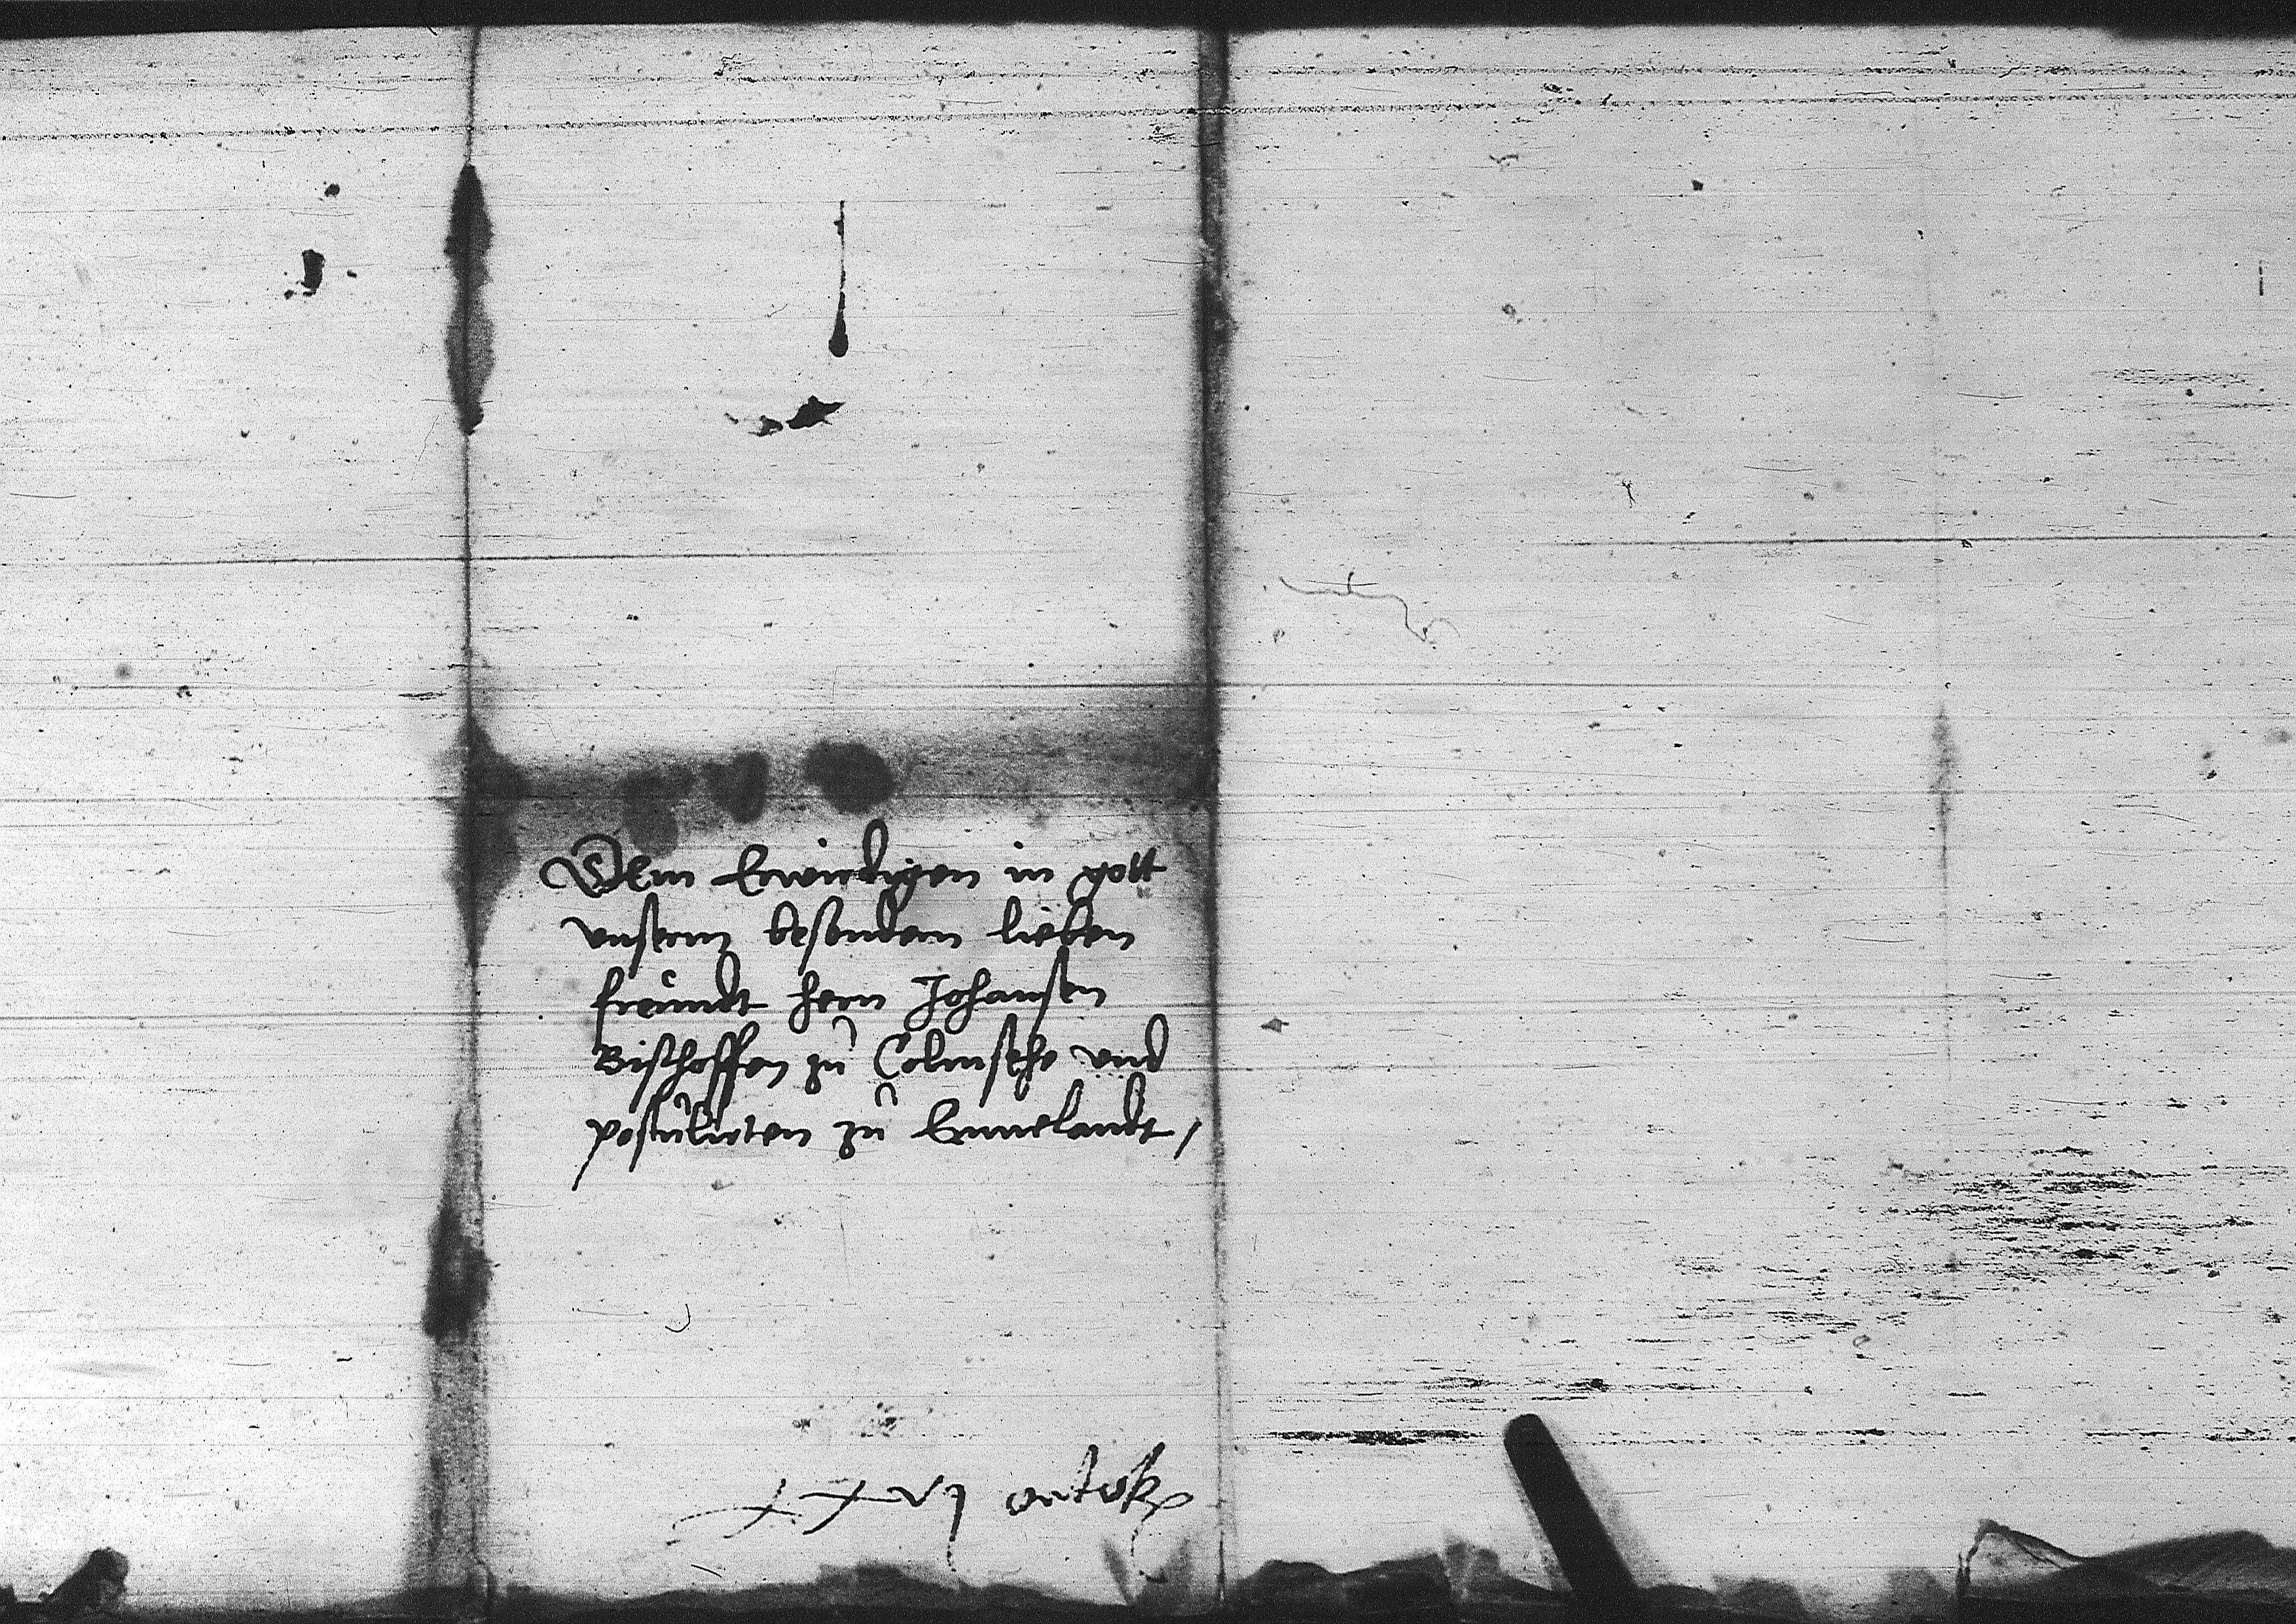 Dem Erwirdigen in gott
vnserm besondern lieben
freundt hern Johansen
Bischoffen zu Colmsehe vnd
postulirten zu Ermelandt,
xxvj octob